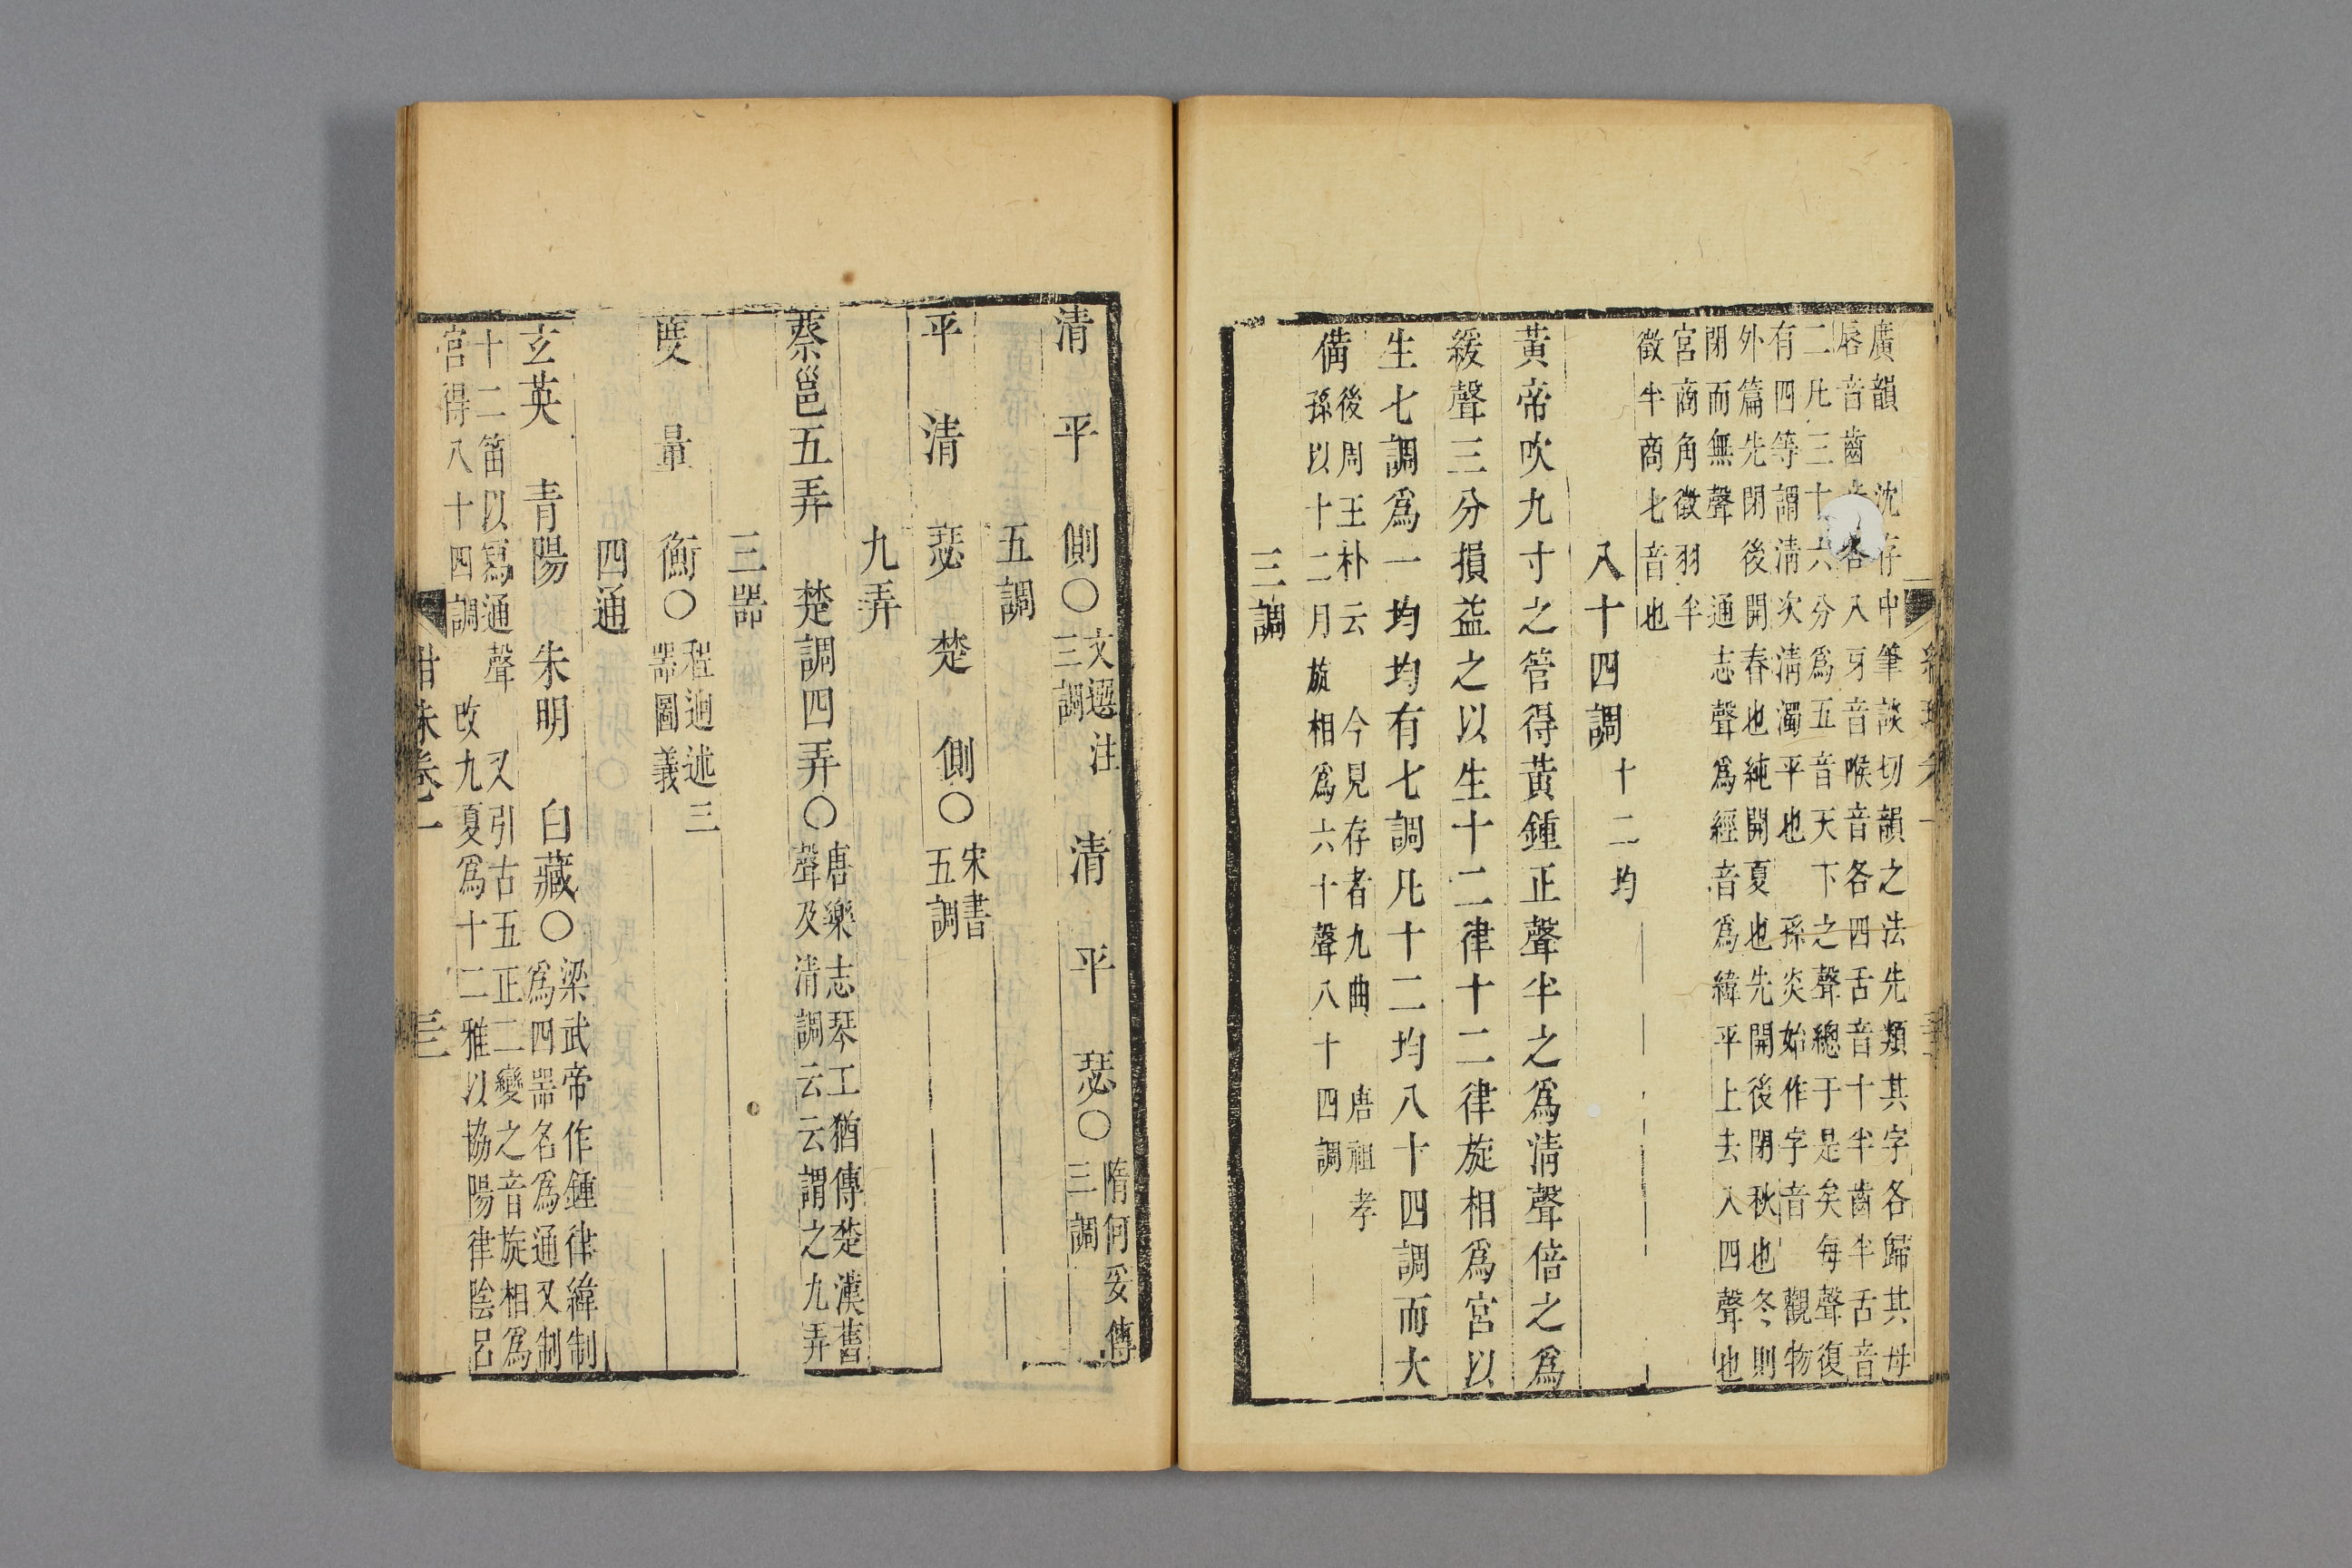 廣韻 沈存中筆談切韻之法先類其字各歸其母
唇音齒各八牙音喉音各四舌音十半齒半舌音
二凡三十六分爲五音天下之聲總于是矣每聲復
有四等謂清次清濁平也 孫炎始作字音 觀物
外篇先閉後開春也純開夏也先開後閉秋也冬則
閉而無聲 通志聲爲經音爲緯平上去入四聲也
宮商角徵羽半
徵半商七音也
八十四調 十二均
黃帝吹九寸之管得黃鍾正聲半之爲清聲倍之爲
緩聲三分損益之以生十二律十二律旋相爲宮以
生七調爲一均均有七調凡十二均八十四調而大
備 後周王朴云 今見存者九曲 唐祖孝
孫以十二月旋相爲六十聲八十四調
三調
清 平 側〇 文選注 三調 清 平 瑟〇 隋何妥傳 三調
五調
平 清 瑟 楚 側〇 宋書 五調
九弄
蔡邕五弄 楚調四弄〇 唐樂志琴工猶傳楚漢舊
聲及清調云云謂之九弄
三器
度 量 衡〇 程迥述三
器圖義
四通
玄英 青陽 朱明 白藏〇 梁武帝作鍾律緯制
爲四器名爲通又制
十二笛以寫通聲 又引古五正二變之音旋相爲
宮得八十四調 改九夏爲十二雅以協陽律陰呂
紺珠卷一